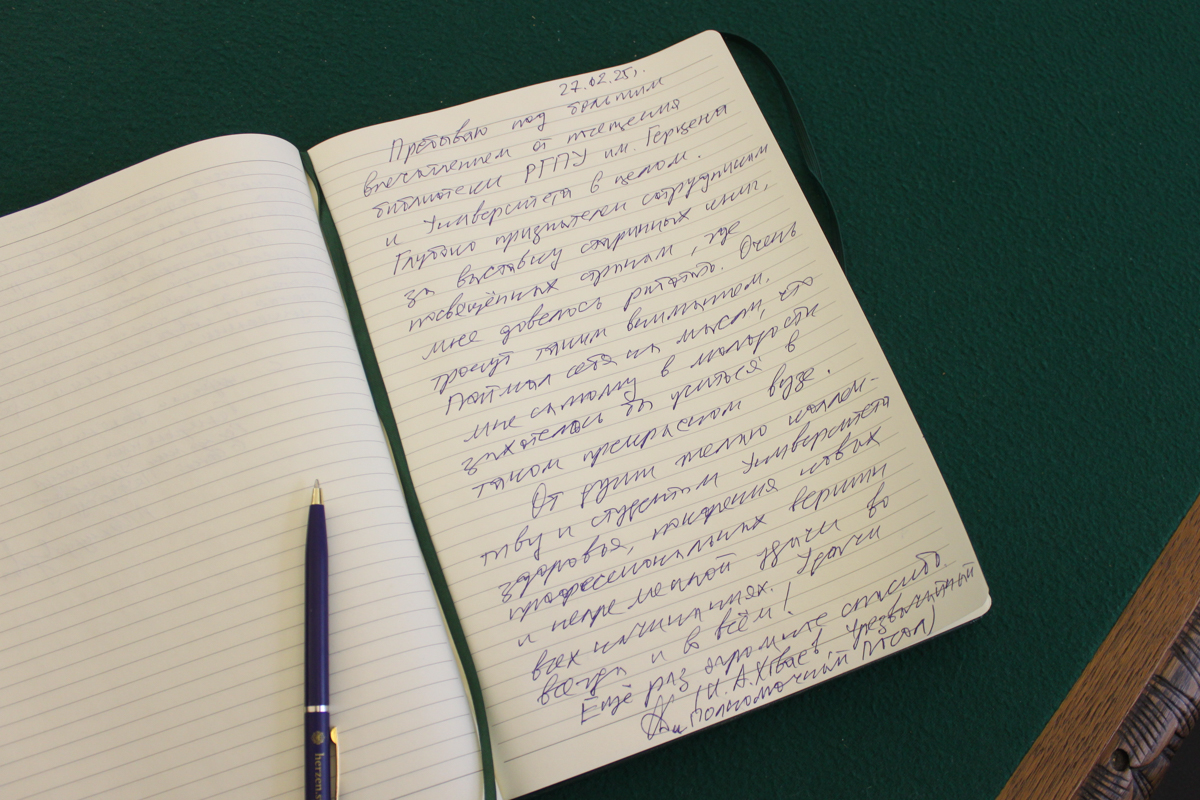 27.02.25г.
Пребываю под большим
впечатлением от посещения
библиотеки РГПУ им. Герцена
и Университета в целом.
Глубоко признателен сотрудникам
за выставку старинных книг,
посвящённых странам, где
мне довелось работать. Очень
тронут таким вниманием.
Поймал себя на мысли, что
мне самому в молодости
захотелось бы учиться в
таком прекрасном вузе.
От души желаю коллек-
тиву и студентам Университета
здоровья, покорения новых
профессиональных вершин
и непременной удачи во
всех начинаниях. Удачи
всегда и во всём!
Ещё раз огромное спасибо
(И.А. Хваев, Чрезвычайный
и Полномочный Посол)
herzen.s